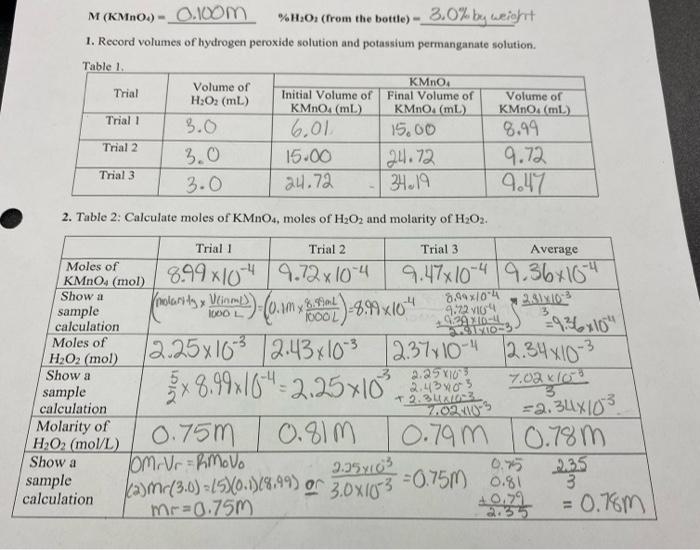 M (KMnO₄) = 0.100M %H₂O₂ (from the bottle) = 3.0% by weight
1. Record volumes of hydrogen peroxide solution and potassium permanganate solution.
Table 1.
Trial Volume of H₂O₂ (mL) KMnO₄
Initial Volume of KMnO₄ (mL) Final Volume of KMnO₄ (mL) Volume of KMnO₄ (mL)
Trial 1 3.0 6.01 15.00 8.99
Trial 2 3.0 15.00 24.72 9.72
Trial 3 3.0 24.72 34.19 9.47
2. Table 2: Calculate moles of KMnO₄, moles of H₂O₂ and molarity of H₂O₂.
Trial 1 Trial 2 Trial 3 Average
Moles of KMnO₄ (mol) 8.99x10⁻⁴ 9.72x10⁻⁴ 9.47x10⁻⁴ 9.36x10⁻⁴
Show a sample calculation
(molarity x V(in mL)/1000L) = (0.1M x 8.99mL/1000L) = 8.99x10⁻⁴
8.99x10⁻⁴
9.72x10⁻⁴
2.81x10⁻³
2.81x10⁻³/3
=9.36x10⁻⁴
Moles of H₂O₂ (mol) 2.25x10⁻³ 2.43x10⁻³ 2.37x10⁻⁴ 2.34x10⁻³
Show a sample calculation
5/2 x 8.99x10⁻⁴ = 2.25x10⁻³
2.25x10⁻³
2.43x10⁻³
+ 2.34x10⁻³
7.02x10⁻³
7.02x10⁻³/3
=2.34x10⁻³
Molarity of H₂O₂ (mol/L) 0.75M 0.81M 0.79M 0.78M
Show a sample calculation
(2)Mr(3.0)=(5)(0.1)(8.99) or 2.25x10⁻³/3.0x10⁻³ = 0.75M
Mr=0.75M
0.75
0.81
+0.79
2.35
2.35/3
= 0.78M